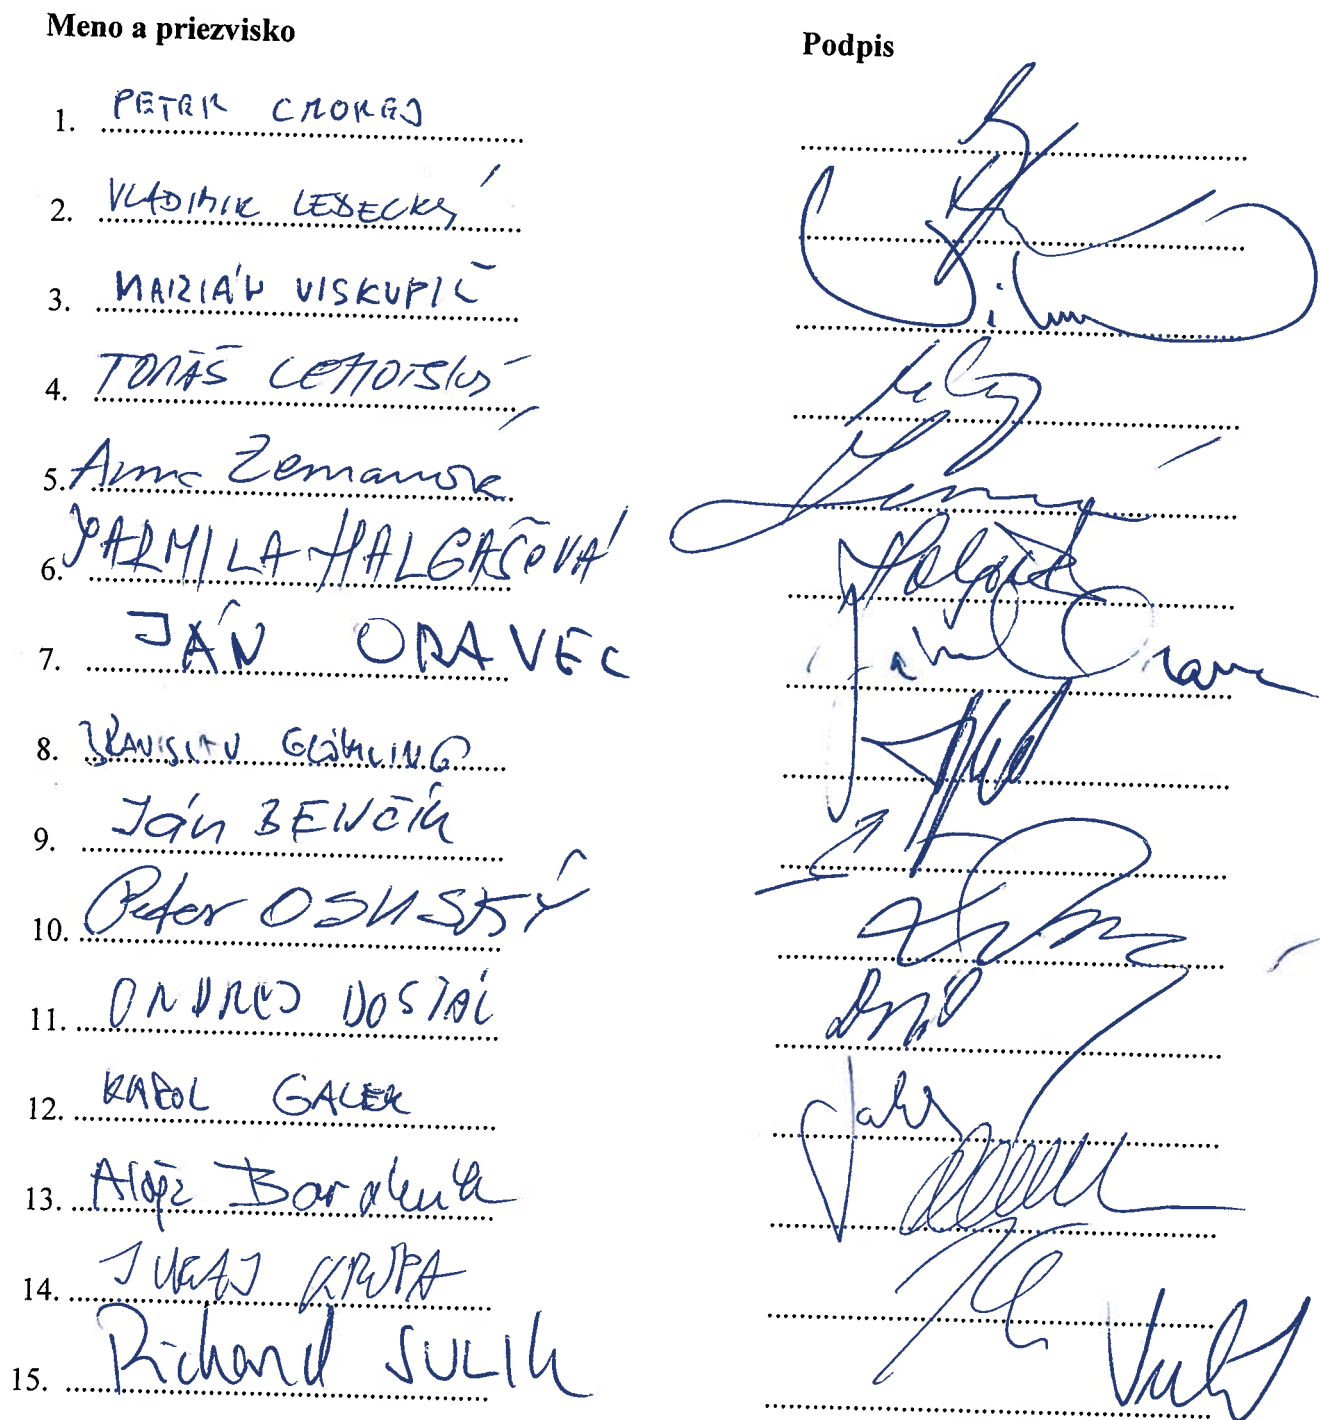 Meno a priezvisko Podpis
1. PETER CMOREJ
2. VLADIMIR LEDECKÝ
3. MARIÁN VISKUPIČ
4. TOMÁŠ LEHOTSKÝ
5. Anna Zemanová
6. JARMILA HALGAŠOVÁ
7. JÁN ORAVEC
8. BRANISLAV GRÖHLING
9. Ján BENČÍK
10. Peter OSUSKÝ
11. ONDREJ DOSTÁL
12. KAROL GALEK
13. Alojz Baránik
14. JURAJ KRÚPA
15. Richard SULIK